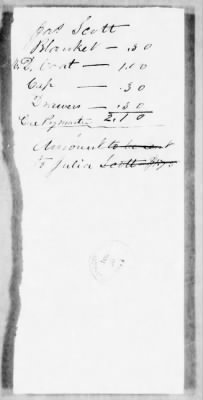 Jas Scott
Blanket — .50
U.D. Coat — 1.00
Cap — .30
Drawers — .30
2.10
Amount to be sent
to Julia Scott